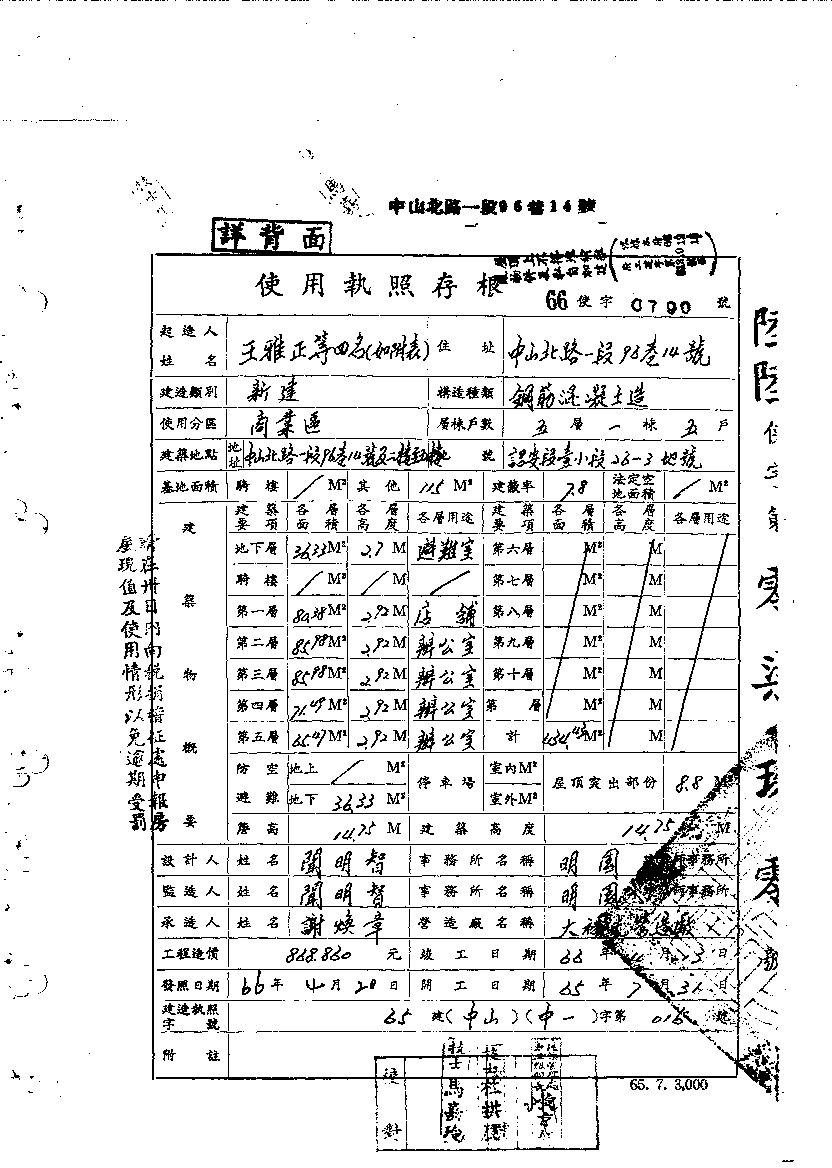 中山北路一段96巷14號
詳背面
使用執照存根
66 使字 0790 號
起造人姓名 王雅正等四名(如附表) 住址 中山北路一段96巷14號
建造類別 新建 構造種類 鋼筋混凝土造
使用分區 商業區 層棟戶數 五層一棟五戶
建築地點 地址 中山北路一段96巷14號 地號 段壹小段26-3地號
基地面積 騎樓 / M² 其他 115 M² 建蔽率 7.8 法定空地面積 / M²
建築物概要
建築要項 各層面積 各層高度 各層用途 建築要項 各層面積 各層高度 各層用途
地下層 36.33 M² 2.7 M 避難室 第六層 M² M
騎樓 / M² / M / 第七層 M² M
第一層 M² 2.92 M 店舖 第八層 M² M
第二層 85.98 M² 2.92 M 辦公室 第九層 M² M
第三層 85.98 M² 2.92 M 辦公室 第十層 M² M
第四層 71.49 M² 2.92 M 辦公室 第 層 M² M
第五層 65.47 M² 2.92 M 辦公室 計 M² M
防空避難 地上 / M² 停車場 室內M² 屋頂突出部份 8.8 M²
地下 36.33 M² 室外M²
簷高 14.75 M 建築高度 14.75 M
設計人 姓名 聞明智 事務所名稱 明園 師事務所
監造人 姓名 聞明智 事務所名稱 明園 師事務所
承造人 姓名 謝煥章 營造廠名稱 大 營造廠
工程造價 868.860 元 竣工日期 66年 月13日
發照日期 66年4月28日 開工日期 65年7月31日
建造執照字號 65 建(中山)(中一)字第 號
附註
65. 7. 3,000
校對
請在卅日內向稅捐稽征處申報房
屋現值及使用情形以免逾期受罰